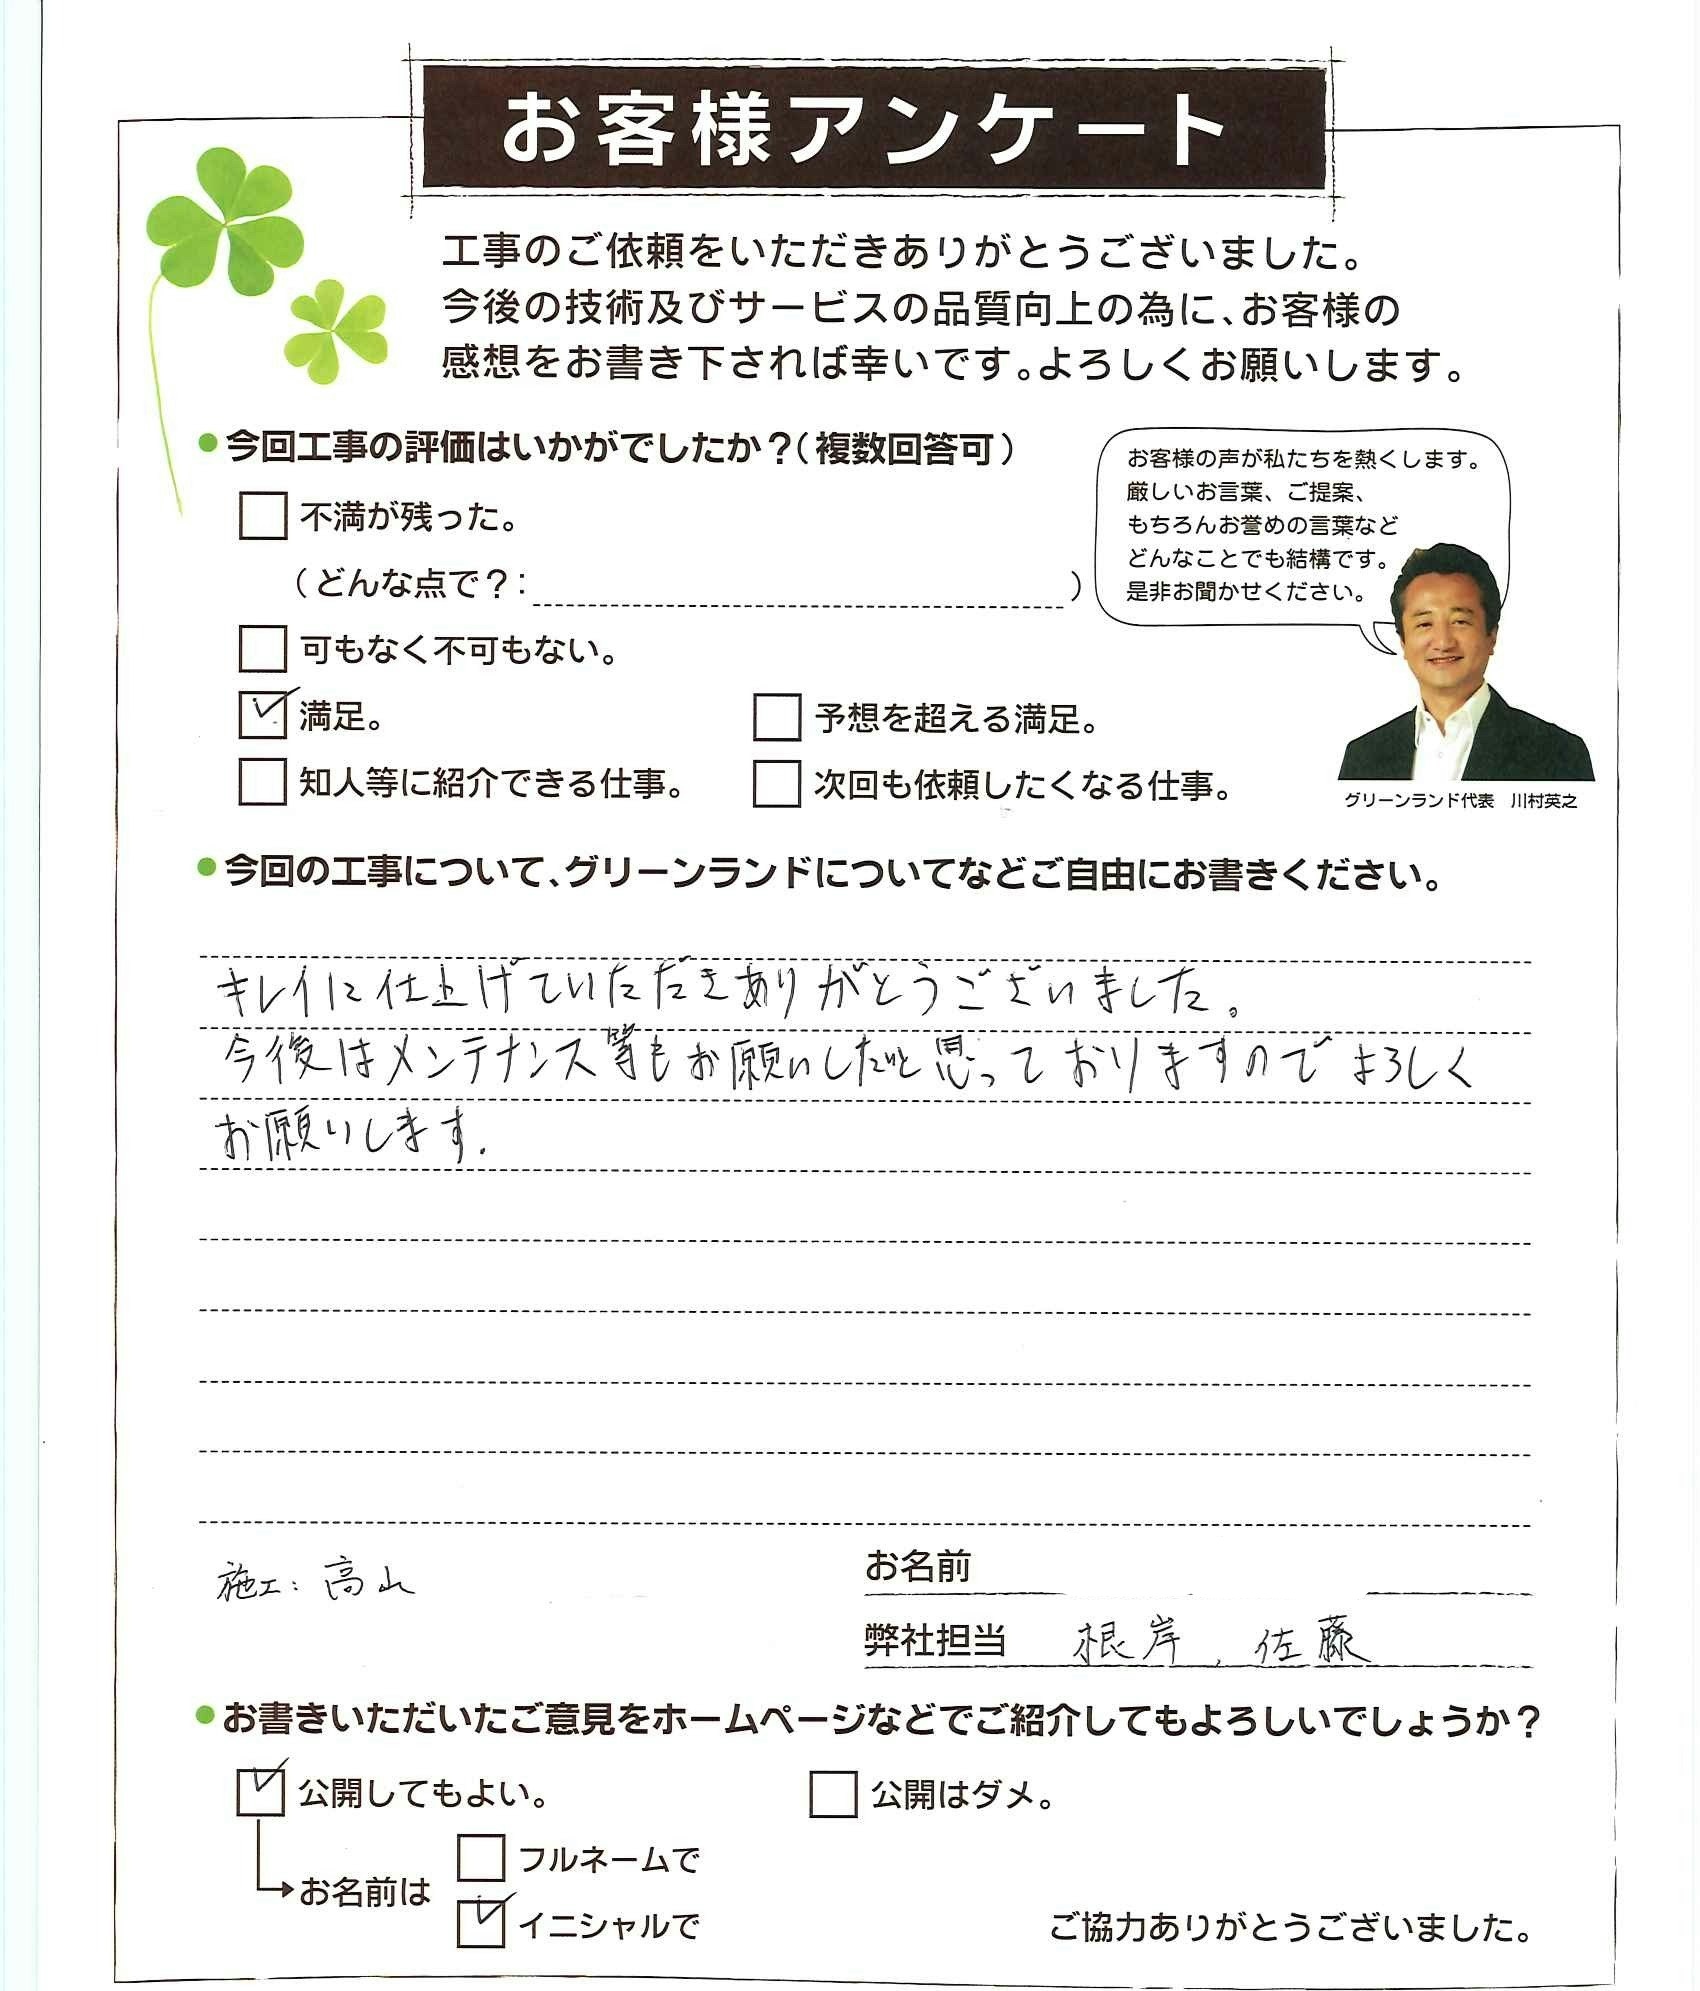 お客様アンケート
工事のご依頼をいただきありがとうございました。
今後の技術及びサービスの品質向上の為に、お客様の
感想をお書き下されば幸いです。よろしくお願いします。
今回工事の評価はいかがでしたか？（複数回答可）
不満が残った。
（どんな点で？：　）
可もなく不可もない。
満足。
予想を超える満足。
知人等に紹介できる仕事。
次回も依頼したくなる仕事。
お客様の声が私たちを熱くします。
厳しいお言葉、ご提案、
もちろんお誉めの言葉など
どんなことでも結構です。
是非お聞かせください。
グリーンランド代表　川村英之
今回の工事について、グリーンランドについてなどご自由にお書きください。
キレイに仕上げていただきありがとうございました。
今後はメンテナンス等もお願いしたいと思っておりますのでよろしく
お願いします.
施工：高山
お名前
弊社担当　根岸, 佐藤
お書きいただいたご意見をホームページなどでご紹介してもよろしいでしょうか？
公開してもよい。
公開はダメ。
お名前は
フルネームで
イニシャルで
ご協力ありがとうございました。